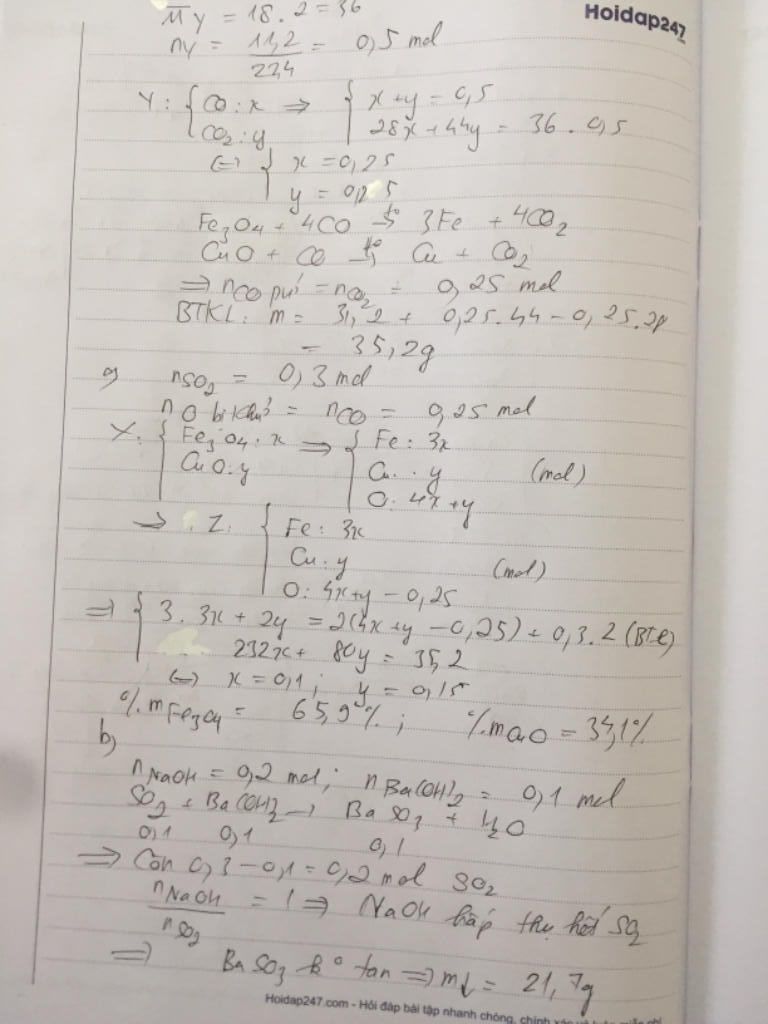 Hoidap247
M̄y = 18.2 = 36
ny = 11,2/22,4 = 0,5 mol
Y: { CO: x ⇒ { x+y = 0,5
CO2: y 28x+44y = 36.0,5
(=) { x = 0,25
y = 0,25
Fe3O4 + 4CO t°→ 3Fe + 4CO2
CuO + CO t°→ Cu + CO2
⇒ nCO pứ = nCO2 = 0,25 mol
BTKL: m = 31,2 + 0,25.44 - 0,25.28
= 35,2g
a) nSO2 = 0,3 mol
nO bị khử = nCO = 0,25 mol
X: { Fe3O4: x ⇒ { Fe: 3x
CuO: y Cu: y (mol)
O: 4x+y
→ Z: { Fe: 3x
Cu: y (mol)
O: 4x+y - 0,25
⇒ { 3.3x + 2y = 2(4x+y - 0,25) + 0,3.2 (BTe)
232x + 80y = 35,2
(=) x = 0,1; y = 0,15
%mFe3O4 = 65,9%; %mCuO = 34,1%
b)
nNaOH = 0,2 mol; nBa(OH)2 = 0,1 mol
SO2 + Ba(OH)2 → BaSO3 + H2O
0,1 0,1 0,1
⇒ Còn 0,3 - 0,1 = 0,2 mol SO2
nNaOH/nSO2 = 1 ⇒ NaOH hấp thụ hết SO2
⇒ BaSO3 k° tan ⇒ m↓ = 21,7g
Hoidap247.com - Hỏi đáp bài tập nhanh chóng, chính xác